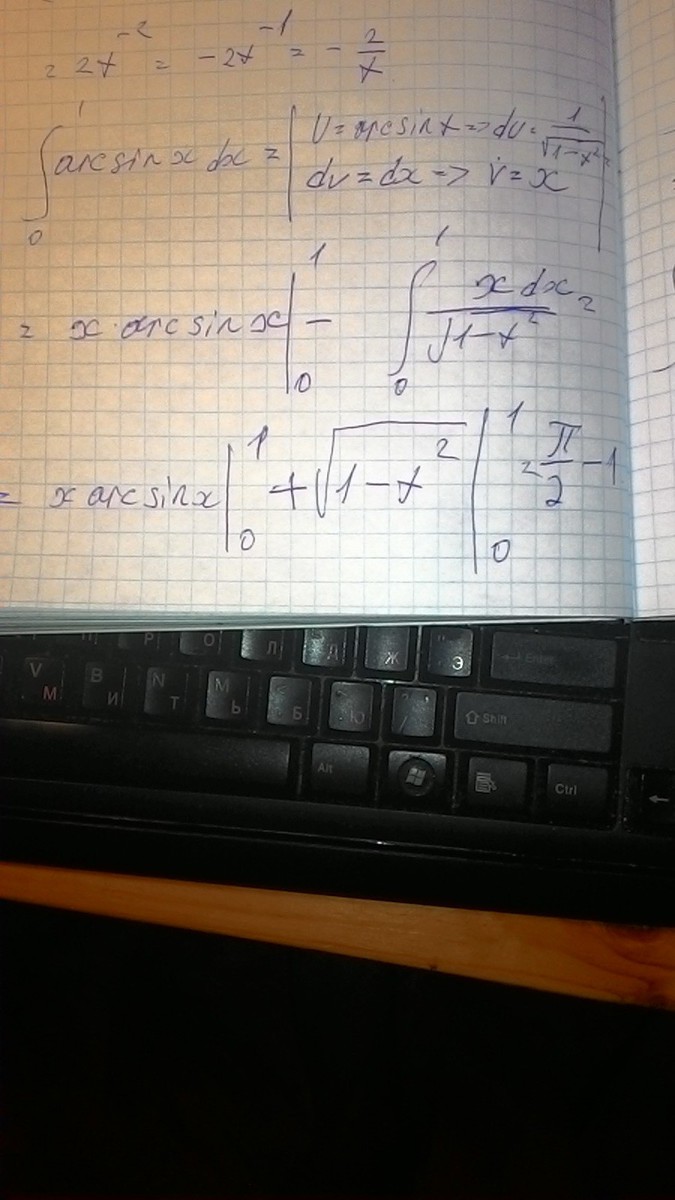 = 2x^-2 = -2x^-1 = - 2/x
∫₀¹ arcsin x dx = | U = arcsin x => du = 1/√(1-x²)
dv = dx => v = x |
= x · arcsin x |₀¹ - ∫₀¹ x dx / √(1-x²) =
= x arcsin x |₀¹ + √(1-x²) |₀¹ = π/2 - 1
Р О Л Д Ж " Э Enter
V М B И N Т M Ь < Б Ю Shift
Alt Ctrl ←